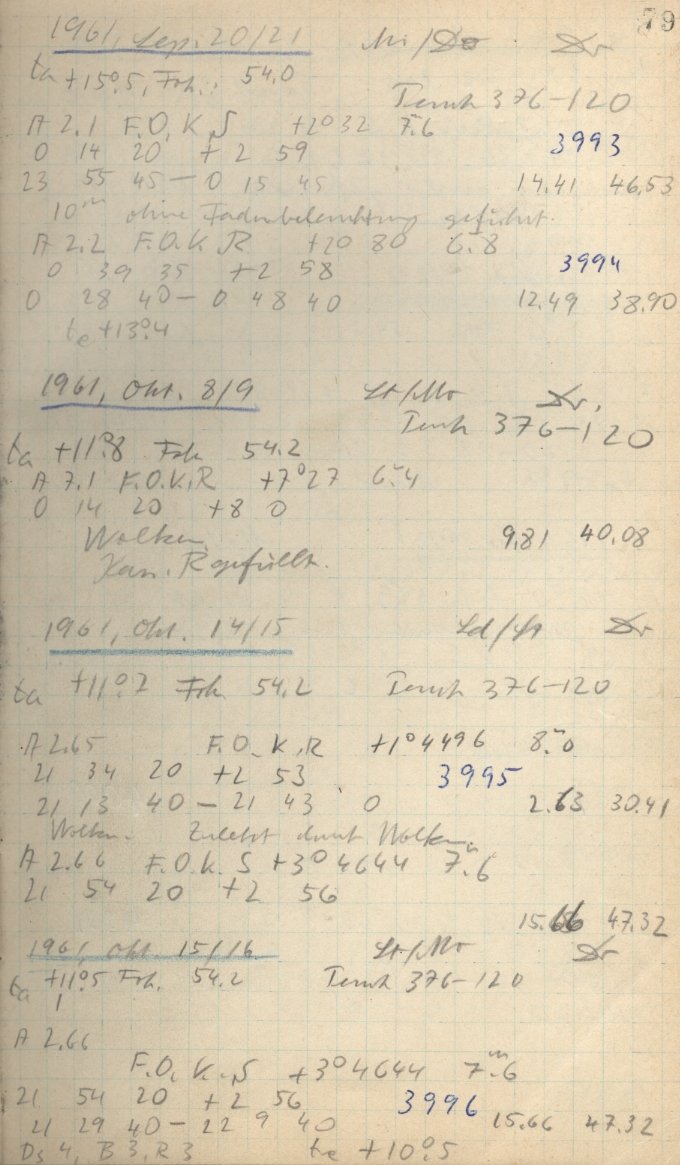 79
1961, Sep. 20/21 Mi/Do Dr
ta +15°.5, Fok.: 54.0
Temch 376-120
A 2.1 F.O.K.S +2°32 7.6
3993
0 14 20 +2 59
23 55 45 — 0 15 45 14.41 46.53
10m ohne Fadenbeleuchtung geführt.
A 2.2 F.O.K.R +20 80 6.8
3994
0 39 35 +2 58
0 28 40 — 0 48 40 12.49 38.90
te +13°.4
1961, Okt. 8/9 St/Mo Dr.
Temch 376-120
ta +11°.8 Fok 54.2
A 7.1 F.O.K.R +7°27 6.4
0 14 20 +8 0
Wolken 9.81 40.08
Kas. R gefüllt.
1961, Okt. 14/15 Sd/St Dr
ta +11°.7 Fok 54.2 Temch 376-120
A 2.65 F.O.K.R +1°4496 8.0
21 34 20 +2 53 3995
21 13 40 — 21 43 0 2.63 30.41
Wolken. Zuletzt durch Wolken
A 2.66 F.O.K.S +3°4644 7m.6
21 54 20 +2 56
15.66 47.32
1961, Okt. 15/16 St/Mo Dr
ta +11°.5 Fok. 54.2 Temch 376-120
A 2.66
F.O.K.S +3°4644 7m.6
21 54 20 +2 56 3996
21 29 40 — 22 9 40 15.66 47.32
Ds 4, B 3, R 3 te +10°.5